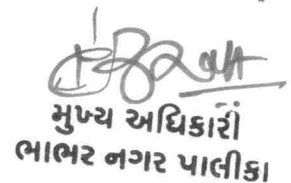 મુખ્ય અધિકારી
ભાભર નગર પાલીકા